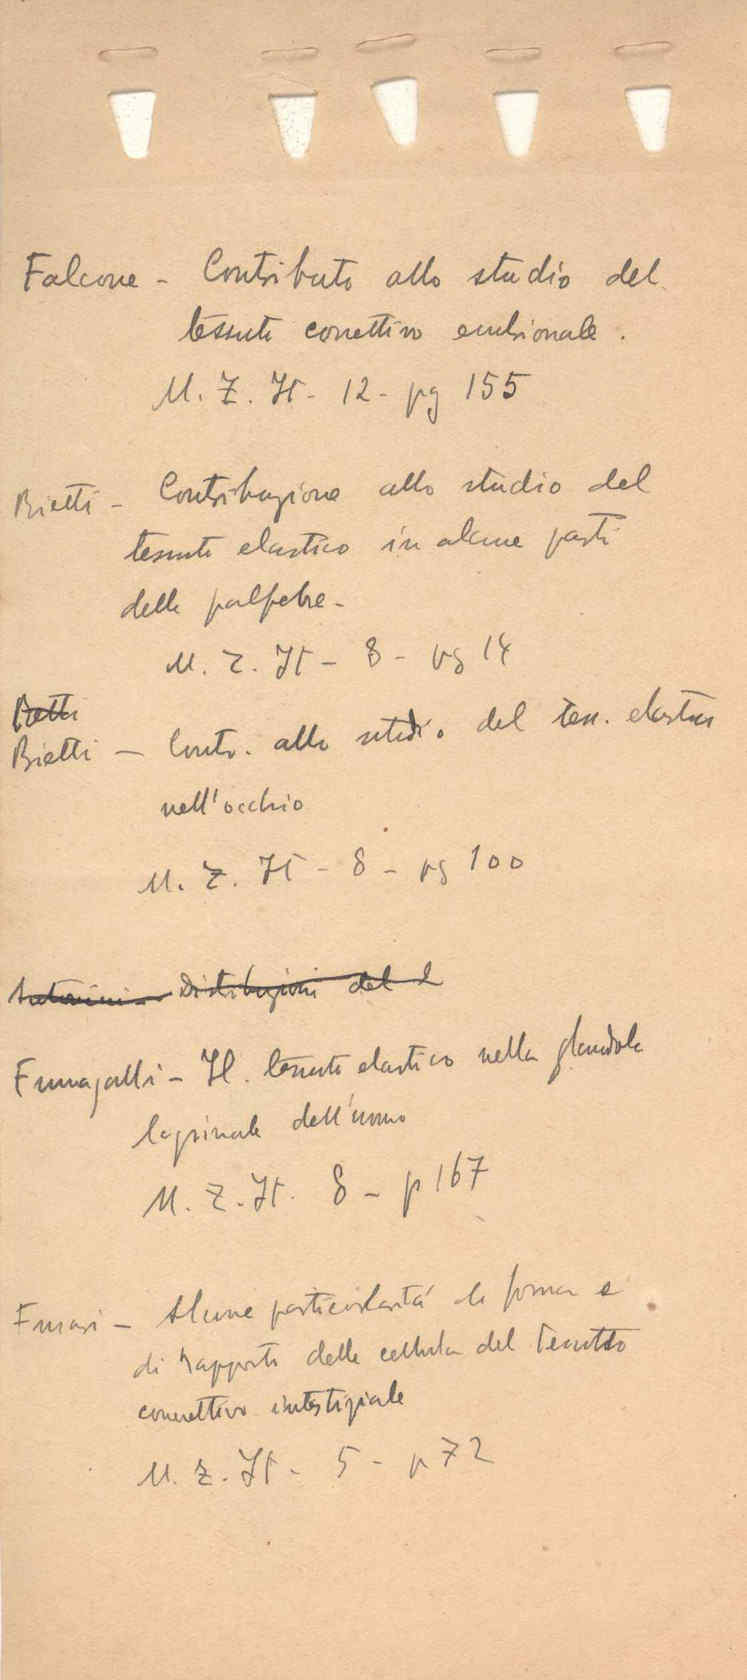 Falcone - Contributo allo studio del
tessuto connettivo embrionale.
M. Z. It - 12 - pg 155
Bietti - Contribuzione allo studio del
tessuto elastico in alcune parti
delle palpebre -
M. Z. It - 8 - pg 14
Bietti
Bietti - Contr. allo studio del tess. elastico
nell'occhio
M. Z. It - 8 - pg 100
Antonini - Distribuzioni del
Fumagalli - Il tessuto elastico nella glandola
lagrimale dell'uomo
M. Z. It. 8 - p 167
Fusari - Alcune particolarità di forma e
di rapporti delle cellule del tessutto
connettivo interstiziale
M. Z. It - 5 - p 72